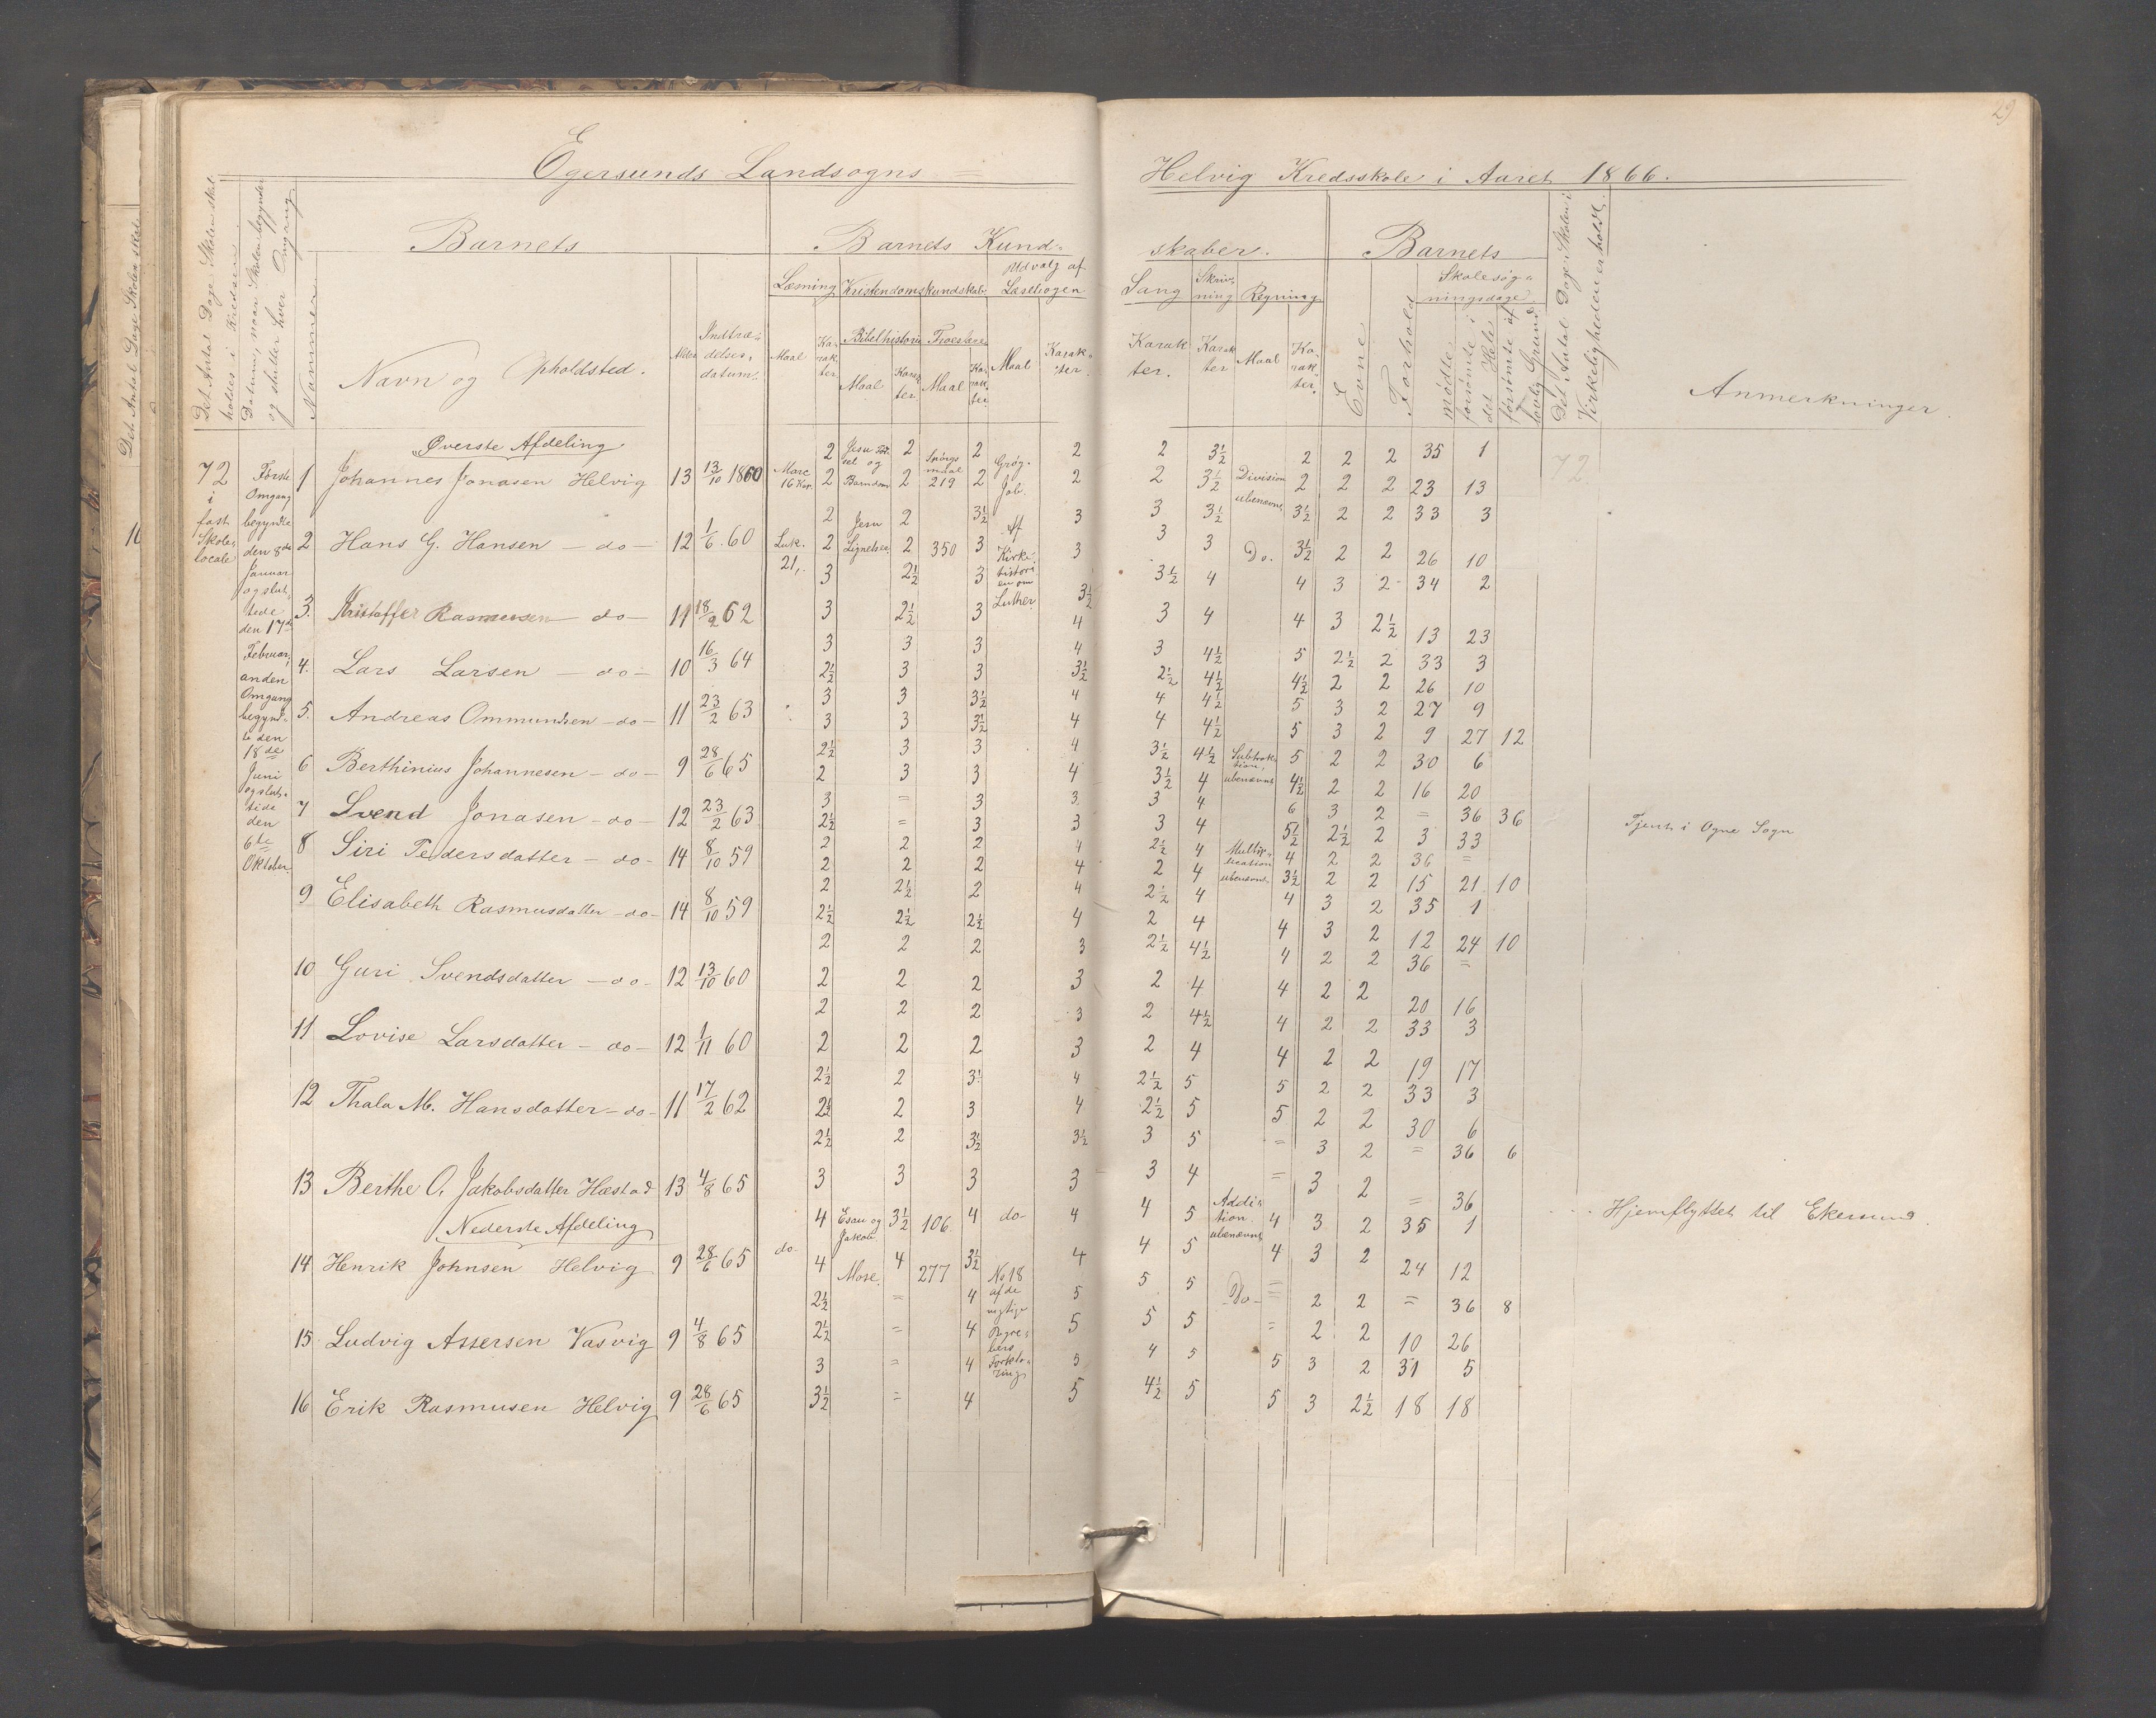 29
Egersunds Landsogns = Helvig Kredsskole i Aaret 1866.
Det Antal Dage Skolen skal holdes i Kredsen.
Datum, naar Skolen begynder og slutter hver Omgang
Nummer
Barnets
Navn og Opholdsted.
Alder
Indtræ-
delses-
datum.
Barnets Kund-
skaber.
Læsning
Maal
Ka-
rak-
ter.
Kristendomskundskab.
Bibelhistorie
Maal
Karak-
ter
Troeslære
Maal
Ka-
rak-
ter
Udvalg af
Læsebogen
Maal
Karak-
ter
Sang
Karak-
ter.
Skriv-
ning
Karak-
ter
Regning
Maal
Ka-
rak-
ter.
Barnets
Evne
Forhold
Skolesøg-
ningsdage.
mødte.
forsømte i det Hele.
forsømte af lovlig Grund.
Det Antal Dage Skolen i Virkeligheden er holdt.
Anmerkninger.
72
i
fast
Skole-
locale
Første
Omgang
begyndte
den 8de
Januar
og slut-
tede
den 17de
Februar,
anden
Omgang
begynd-
te den
18de
Juni
og slut-
tede
den
6te
Oktober.
Øverste Afdeling
1 Johannes Jonasen Helvig 13 13/10 1860
2 Hans G. Hansen - do - 12 1/6 60
3. Kristoffer Rasmusen - do - 11 18/2 62
4. Lars Larsen - do - 10 16/3 64
5. Andreas Ommundsen - do - 11 23/2 63
6 Berthinius Johannesen - do - 9 28/6 65
7 Svend Jonasen - do - 12 23/2 63
8 Siri Pedersdatter - do - 14 8/10 59
9 Elisabeth Rasmusdatter - do - 14 8/10 59
10 Guri Svendsdatter - do - 12 13/10 60
11 Lovise Larsdatter - do - 12 1/11 60
12 Thala M. Hansdatter - do - 11 17/2 62
13 Berthe O. Jakobsdatter Hæstad 13 4/8 65
Nederste Afdeling
14 Henrik Johnsen Helvig 9 28/6 65
15 Ludvig Assersen Vasvig 9 4/8 65
16 Erik Rasmusen Helvig 9 28/6 65
Marc
16 Kap.
Luk.
21,.
do-
Jesu Fød-
sel og
Barndom
Jesu
Lignelser
Esau og
Jakob.
Mose.
Spørgs
maal
219
350
106
277
Kirke-
histori
en om
Luther
do-
No 18
af de
Forkla-
ring
Division
ubenævnt
Do.
Subtrak-
tion,
ubenævnt
Multip-
lication
ubenævnt
Addi-
tion
ubenævnt
- Do -
2 2 2 2 2 3½ 2 2 2 35 1 72
2 2 2 2 2 3½ 2 2 2 23 13
2 2 3½ 3 3 3½ 3½ 2 2 33 3
2 2 3 3 3 3 3½ 2 2 26 10
3 2½ 3 3½ 3½ 4 4 3 2 34 2
3 2½ 3 4 3 4 4 3 2½ 13 23
3 3 3 4 3 4½ 5 2½ 2 33 3
2½ 3 3 3½ 2½ 4½ 4½ 2 2 26 10
3 3 3½ 4 4 4½ 5 3 2 27 9
3 3 3½ 4 4 4½ 5 3 2 9 27 12
2½ 3 3 4 3½ 4½ 5 2 2 30 6
2 3 3 4 3½ 4 4½ 2 2 16 20
3 = 3 3 3 4 6 3 2 = 36 36 Tjent i Ogne Sogn
2½ = 3 3 3 4 5½ 2½ 2 3 33
2 2 2 4 2½ 4 4 2 2 36 =
2 2 2 4 2 4 3½ 2 2 15 21 10
2 2½ 2 4 2½ 4 4 3 2 35 1
2½ 2½ 2½ 4 2 4 4 3 2 12 24 10
2 2 2 3 2½ 4½ 4 2 2 36 =
2 2 2 3 2 4 4 2 2 20 16
2 2 2 3 2 4½ 4 2 2 33 3
2 2 2 3 2 4 4 2 2 19 17
2½ 2 3½ 4 2½ 5 5 2 2 33 3
2½ 2 3 4 2½ 5 5 2 2 30 6
2½ 2 3½ 3½ 3 5 = 3 2 = 36 6
3 3 3 3 3 4 = 3 2 = 36 Hjemflyttet til Ekersund.
4 3½ 4 4 4 5 4 3 2 35 1
4 4 3½ 4 4 5 4 3 2 24 12
2½ = 4 5 5 5 = 2 2 = 36 8
2½ = 4 5 5 5 = 2 2 10 26
3 = 4 5 4 5 5 3 2 31 5
3½ = 4 5 4½ 5 5 3 2½ 18 18
Det Antal Dage Skolen skal